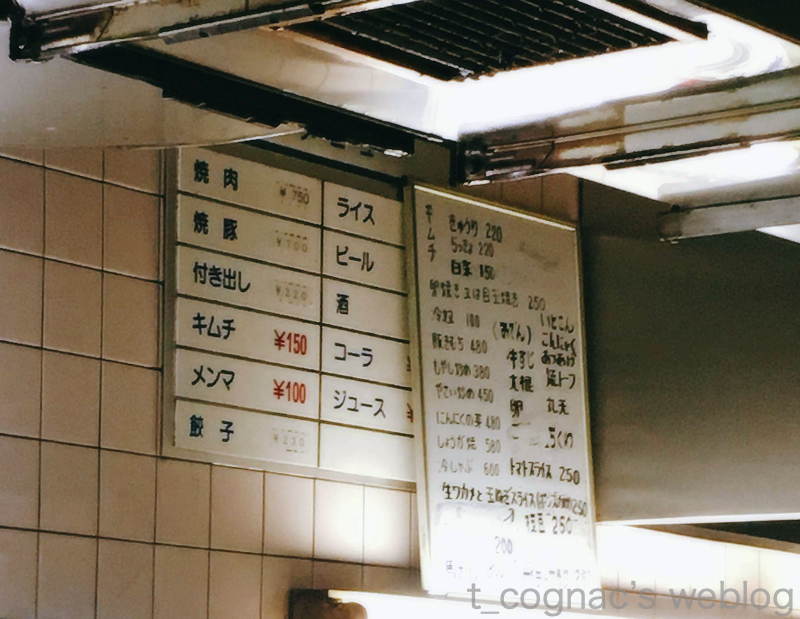 焼肉 ¥750
焼豚 ¥700
付き出し ¥220
キムチ ¥150
メンマ ¥100
餃子 ¥220
ライス
ビール
酒
コーラ
ジュース
キムチ
きゅうり 220
らっきょ 220
白菜 150
卵焼き又は目玉焼き 250
100
豚きもち 480
もやし炒め 380
やさい炒め 450
にんにくの芽 480
しょうが焼 580
冷しゃぶ 600
(おでん)
牛すじ
大根
卵
いとこん
こんにゃく
あつあげ
焼トーフ
丸天
ちくわ
トマトスライス 250
生ワカメと玉ねぎスライス
枝豆 250
200
t_cognac's weblog